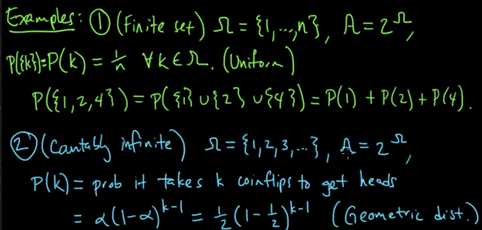 Examples: ① (Finite set) Ω = {1,...,n}, A = 2^Ω,
P({k}) = P(k) = 1/n ∀k∈Ω. (Uniform)
P({1,2,4}) = P({1}∪{2}∪{4}) = P(1) + P(2) + P(4).
② (Countably infinite) Ω = {1,2,3,...}, A = 2^Ω,
P(k) = prob it takes k coinflips to get heads
= α(1-α)^{k-1} = 1/2(1-1/2)^{k-1} (Geometric dist.)